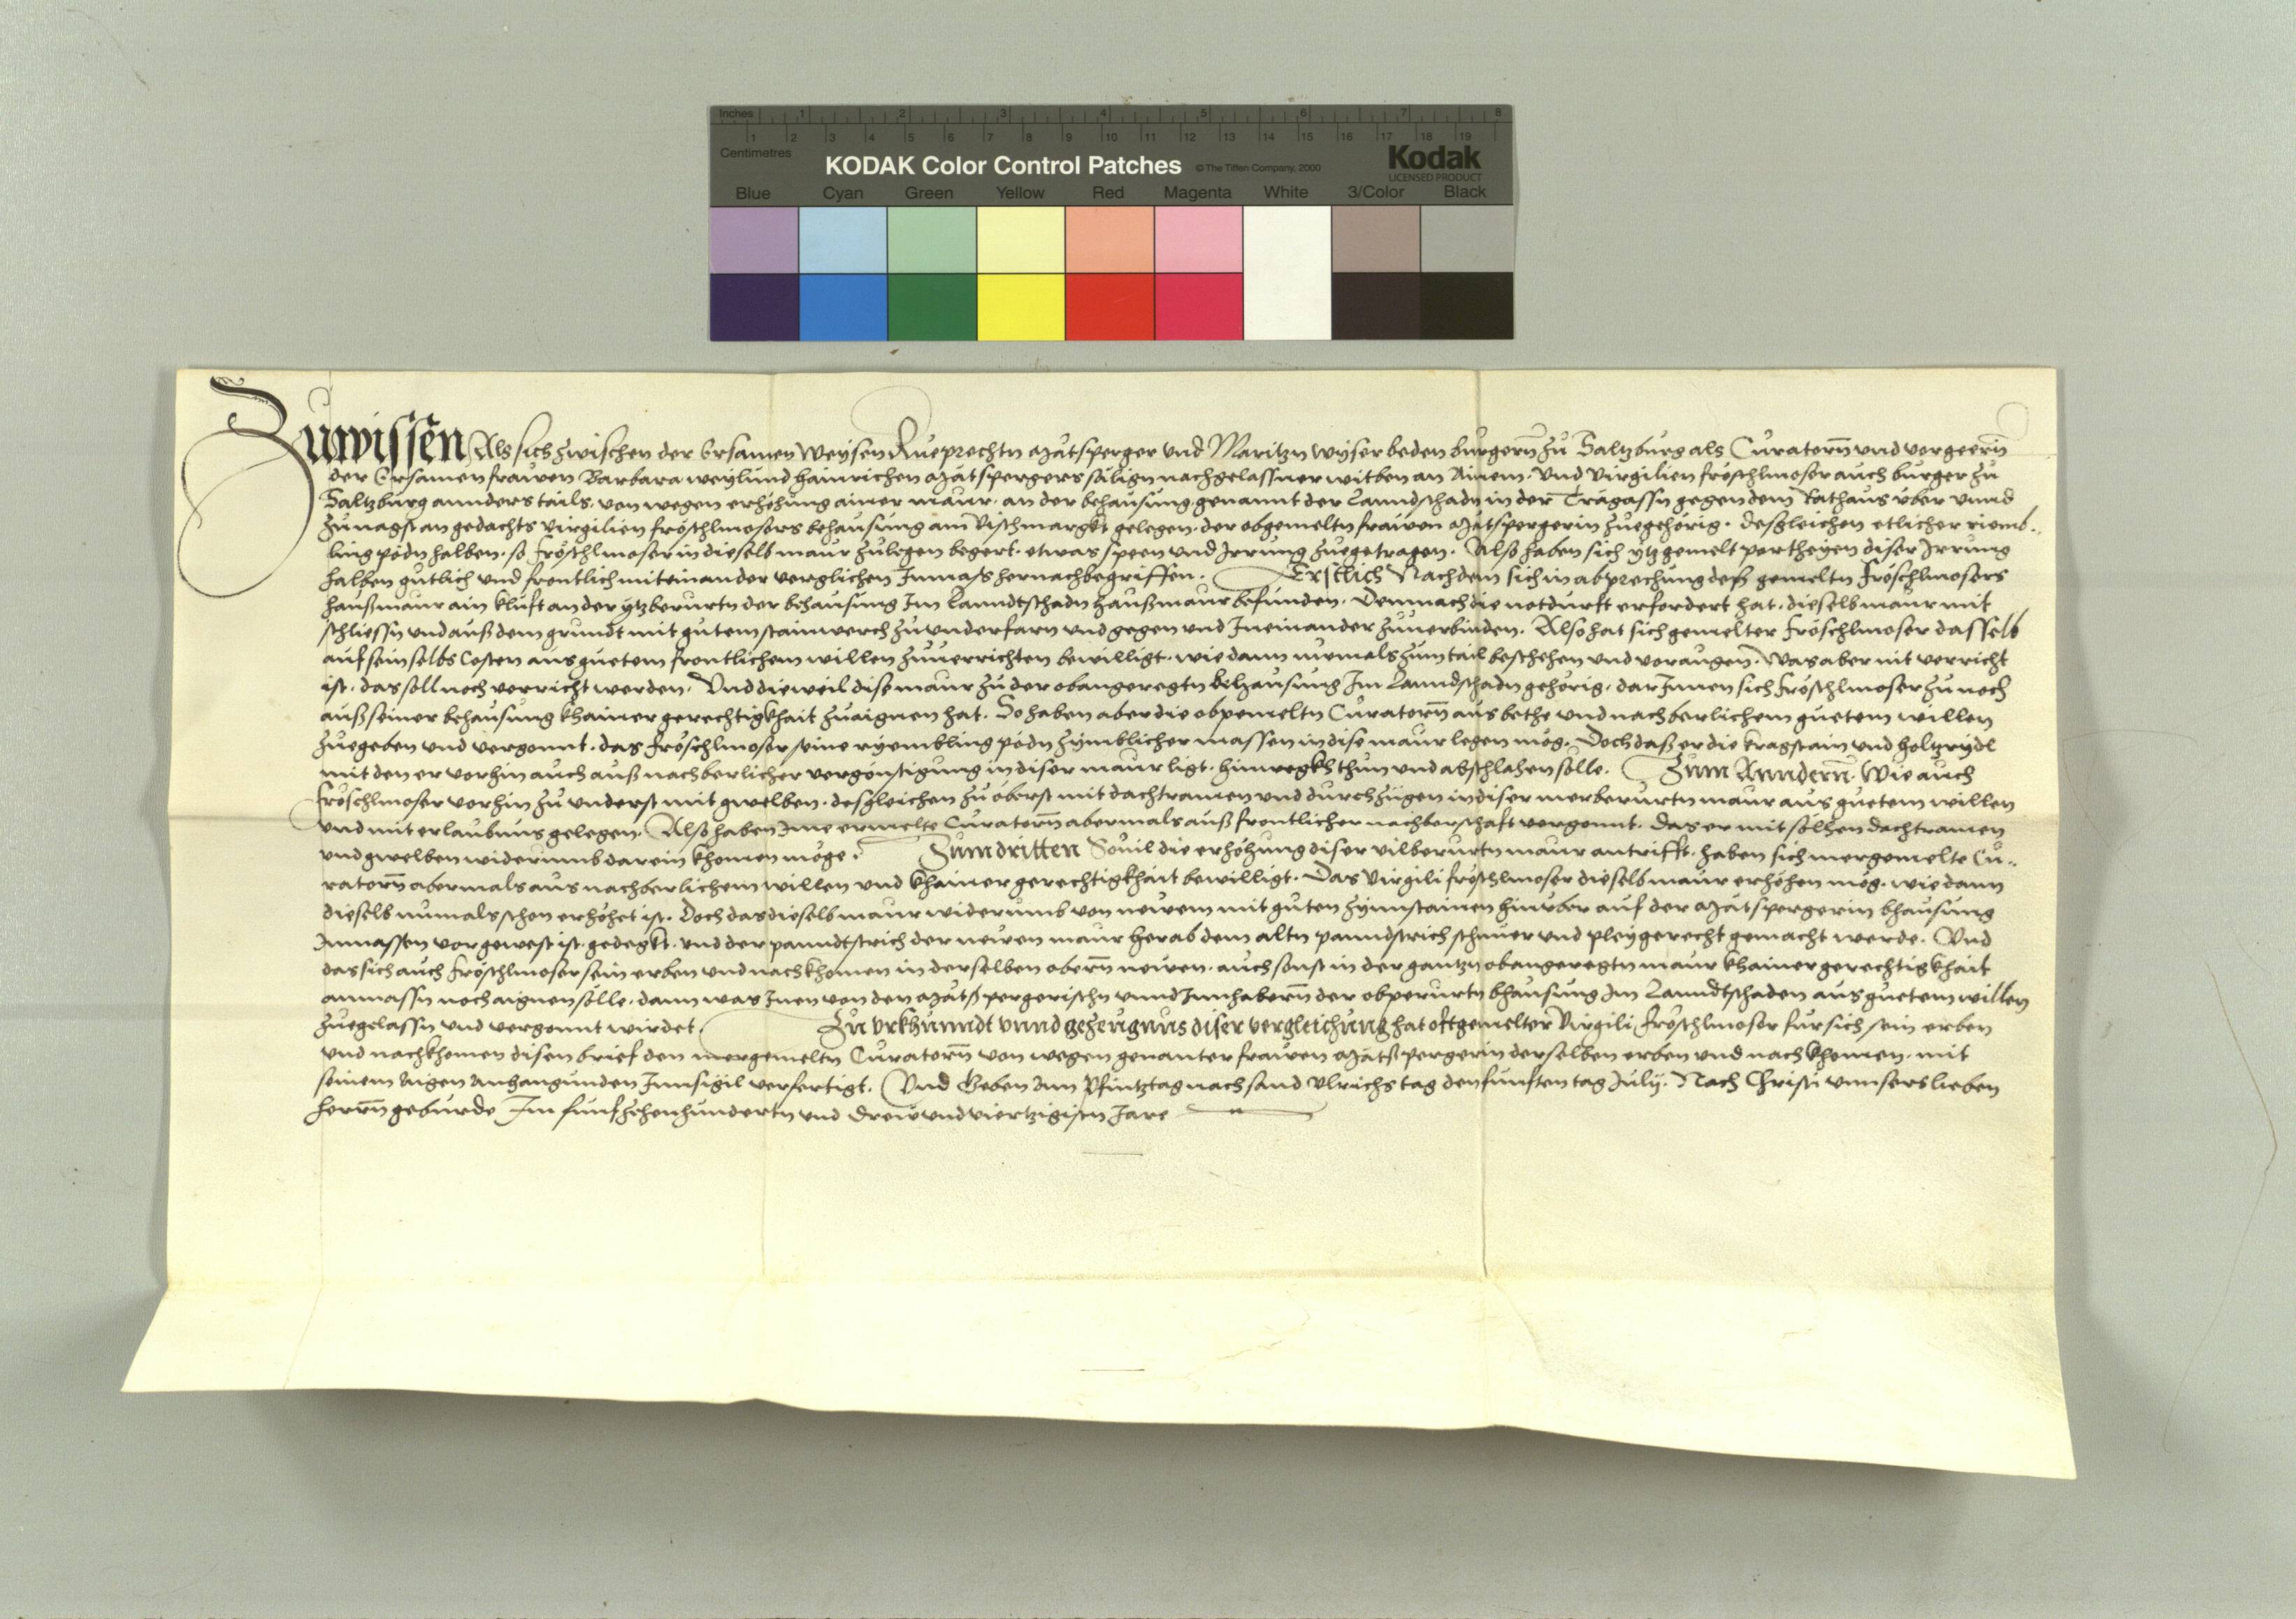 Inches 1 2 3 4 5 6 7 8
1 2 3 4 5 6 7 8 9 10 11 12 13 14 15 16 17 18 19
Centimetres
KODAK Color Control Patches © The Tiffen Company, 2000 Kodak
LICENSED PRODUCT
Blue Cyan Green Yellow Red Magenta White 3/Color Black
Zuwissen Als sich zwischen der Ersamen Weysen Rueprechtn Mätsperger und Maritzn wyser beden burgern zu Saltzburg als Curatorn und vorgeern
der Ersamen frawen Barbara weylund hainrichen Mätspergers säligen nachgelassner witben an Ainem. Und Virgilien fröschlmoser auch burger zu
Saltzburg annders tails. von wegen erhöhung ainer maur. an der behausung genannt der Lanndschadn in der Trägassn gegen dem Rathaus uber unnd
zunagst an gedachts Virgilien fröschlmosers behausung am Vischmargkt gelegen. der obgemeltn frawen Mätspergerin zuegehörig. desgleichen etlicher riemb..
ling pödn halben. so fröschlmoser in dieselb maur zulegen begert. etwas speen und Irrung zuegetragen. Also haben sich ytzgemelt partheyen diser Irrung
halben gutlich und frontlich miteinander verglichen Inmass hernachbegriffen. Erstlich Nachdem sich in abprechung deß gemeltn fröschlmosers
haußmaur ain kluft an der ytzberurtn der behausung Im Lanndtschadn haußmaur befunden. Demnach die notdurft erfordert hat. dieselb maur mit
schliessn und auß dem grundt mit gutem stainwerch zu underfarn und gegen und In einander zuuerbinden. Also hat sich gemelter fröschlmoser dasselb
auf sein selbs Costen aus guetem frontlichem willen zuuerrichten bewilligt. wie dann numals zum tail beschehen und voraugen. Was aber nit verricht
ist. das soll noch verricht werden. Und dieweil dise maur zu der obangeregtn behausung Im Lanndschadn gehörig. dar Innen sich fröschlmoser zu noch
auß seiner behausung khainer gerechtigkhait zuaignen hat. So haben aber die obgemeltn Curatorn aus bethe und nachberlichem guetem willen
zuegeben und vergonnt. das fröschlmoser seine ryembling pödn zymblicher massen in dise maur legen mög. Doch daß er die kragstain und holtzrydl
mit den er vorhin auch auß nachberlicher vergönstigung in diser maur ligt. hinwegkh thun und abschlahen solle. Zum Anndern. Wie auch
fröschlmoser vorhin zu underst mit gwelben. desgleichen zu oberst mit dachtramen und durchzügen in diser merberurtn maur aus guetem willen
und mit erlaubnus gelegen. Also haben Ime ermelte Curatorn abermals auß frontlicher nachberschaft vergonnt. das er mit solhen dachtramen
und gwelben widerumb darein khomen möge. Zum dritten Souil die erhöhung diser vilberurtn maur antrifft. haben sich mergemelte Cu..
ratorn abermals aus nachberlichem willen und khainer gerechtigkhait bewilligt. Das Virgili fröschlmoser dieselb maur erhöhen mög. wie dann
dieselb numals schon erhöhet ist. doch das dieselb maur widerumb von newem mit guten zynnstainen hinüber auf der Mätspergerin bhausung
Inmassen vor gewest ist. gedegkt. und der panndtstrich der newen maur herab dem altn panndstrich schnuer und pleygerecht gemacht werde. Und
das sich auch fröschlmoser sein erben und nachkhomen in derselben obern newen. auch sonst in der gantzn obangeregtn maur khainer gerechtigkhait
anmassn noch aignen sölle. dann was Inen von den Mätspergerischn unnd Innhabern der obperurtn bhausung Im Lanndtschaden aus guetem willen
zuegelassn und vergonnt wirdet. Zu urkhunndt unnd gezeugnus diser vergleichung hat oftgemelter Virgili fröschlmoser fur sich sein erben
und nachkhomen disen brief den mergemeltn Curatorn von wegen genanter frawen Mätspergerin derselben erben und nachkhomen. mit
seinem aigen anhangunden Innsigil verfertigt. Und Geben Am Pfintztag nach sand Ulrichs tag den funften tag July. Nach Christi unnsers lieben
herrn geburde Im funfzehenhundertn und drewundviertzigisten Jare